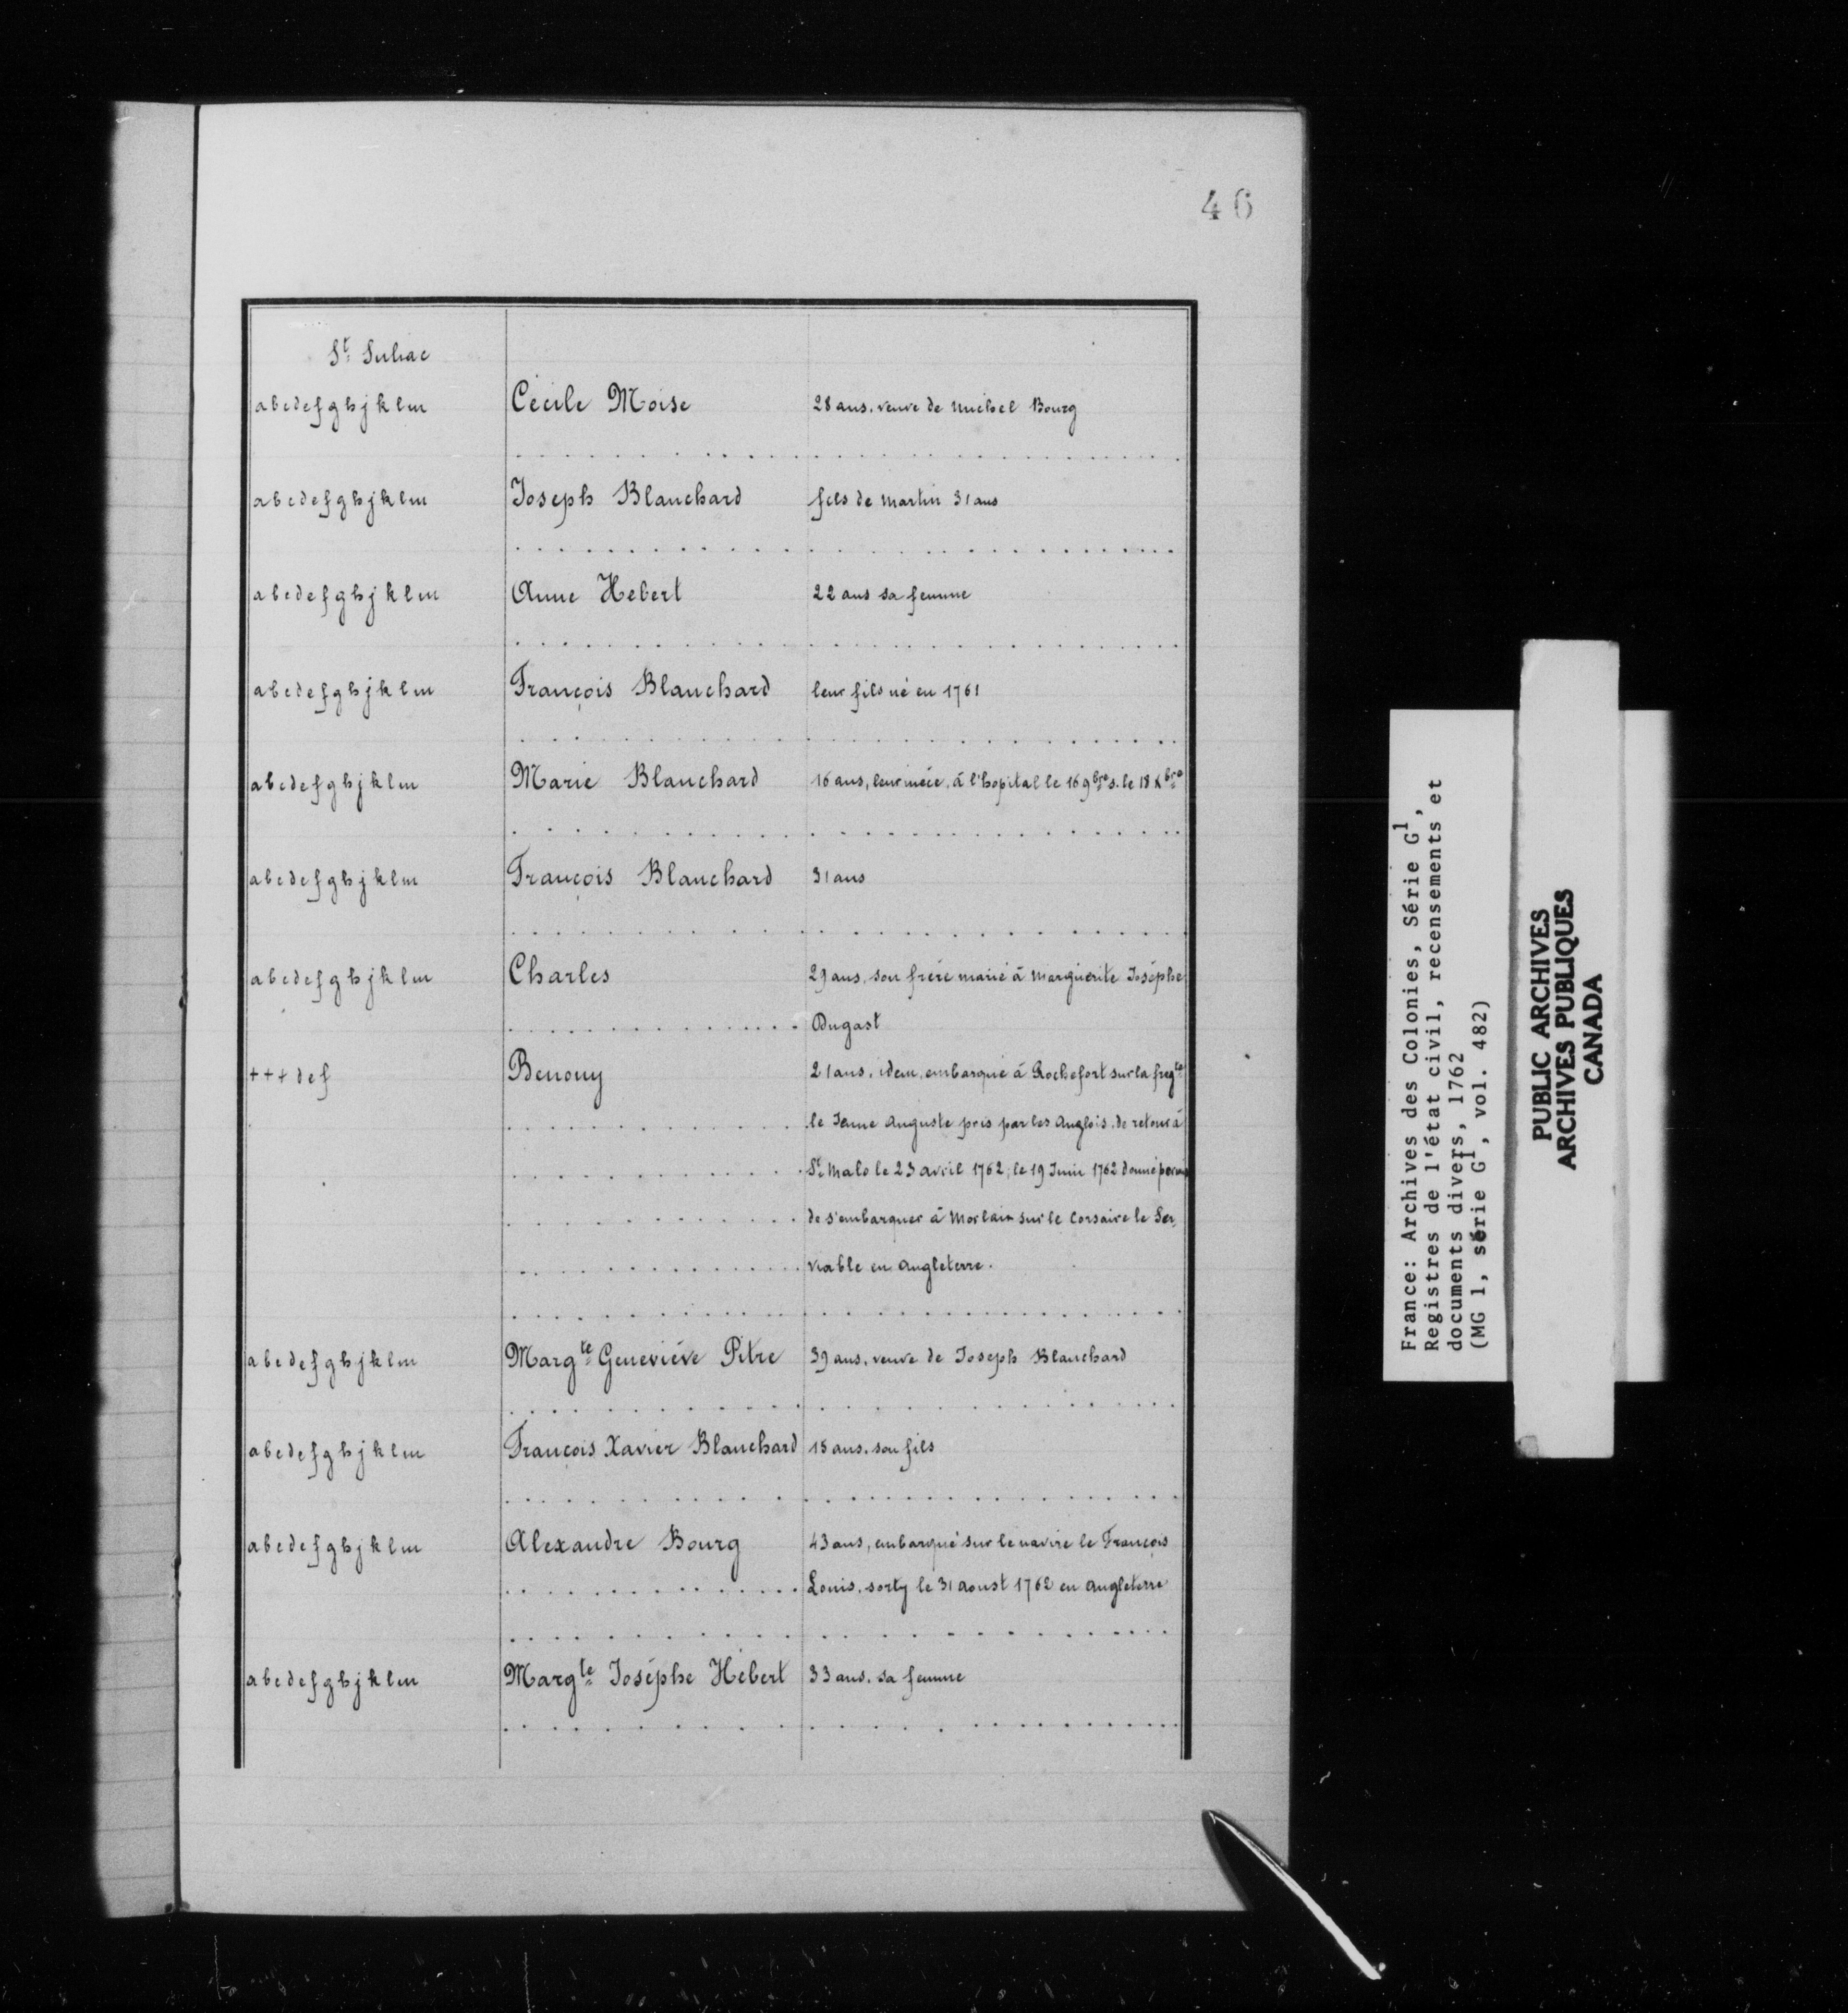 46
St Suliac
abcdefghjklm Cécile Moise 28 ans, veuve de Michel Bourg
abcdefghjklm Joseph Blanchard fils de Martin 31 ans
abcdefghjklm Anne Hebert 22 ans sa femme
abcdefghjklm François Blanchard leur fils né en 1761
abcdefghjklm Marie Blanchard 16 ans, leur niéce, à l'hopital le 16 9bre s. le 18 Xbre
abcdefghjklm François Blanchard 31 ans
abcdefghjklm Charles 29 ans, son frére marié à Marguerite Joséphe
Dugast
+++def Benony 21 ans, idem, embarqué à Rochefort sur la fregte
le Jeune Auguste pris par les Anglois, de retour à
St Malo le 23 avril 1762, le 19 Juin 1762 donné permis
de s'embarquer à Morlaix sur le Corsaire le Ser,
viable en Angleterre.
abcdefghjklm Margte Geneviéve Pitre 39 ans, veuve de Joseph Blanchard
abcdefghjklm François Xavier Blanchard 15 ans, son fils
abcdefghjklm Alexandre Bourg 43 ans, embarqué sur le navire le François
Louis, sorty le 31 aoust 1762 en Angleterre
abcdefghjklm Margte Joséphe Hébert 33 ans, sa femme
France: Archives des Colonies, Série G1,
Registres de l'état civil, recensements et
documents divers, 1762
(MG 1, série G1, vol. 482)
PUBLIC ARCHIVES
ARCHIVES PUBLIQUES
CANADA